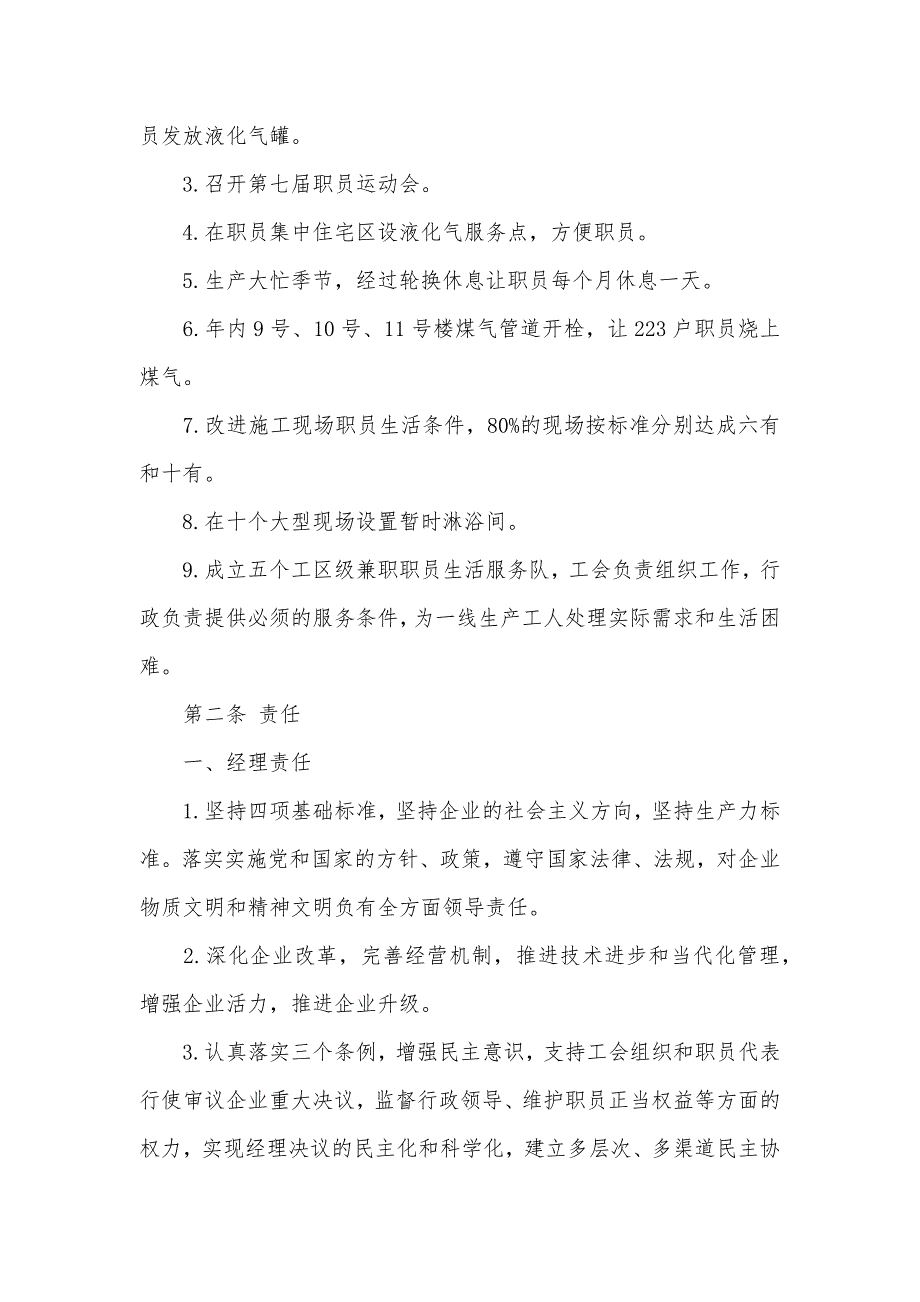 员发放液化气罐。
3.召开第七届职员运动会。
4.在职员集中住宅区设液化气服务点，方便职员。
5.生产大忙季节，经过轮换休息让职员每个月休息一天。
6.年内 9 号、10 号、11 号楼煤气管道开栓，让 223 户职员烧上
煤气。
7.改进施工现场职员生活条件，80%的现场按标准分别达成六有
和十有。
8.在十个大型现场设置暂时淋浴间。
9.成立五个工区级兼职职员生活服务队，工会负责组织工作，行
政负责提供必须的服务条件，为一线生产工人处理实际需求和生活困
难。
第二条 责任
一、经理责任
1.坚持四项基础标准，坚持企业的社会主义方向，坚持生产力标
准。落实实施党和国家的方针、政策，遵守国家法律、法规，对企业
物质文明和精神文明负有全方面领导责任。
2.深化企业改革，完善经营机制，推进技术进步和当代化管理，
增强企业活力，推进企业升级。
3.认真落实三个条例，增强民主意识，支持工会组织和职员代表
行使审议企业重大决议，监督行政领导、维护职员正当权益等方面的
权力，实现经理决议的民主化和科学化，建立多层次、多渠道民主协